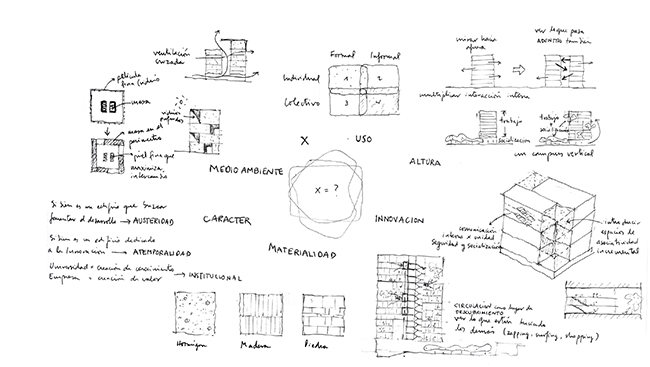 ventilación
cruzada
película
fina (vidrio)
masa
masa en el
perímetro
piel fina que
maximiza
intercambio
vidrios
profundos
Formal Informal
Individual
Colectivo
1 2
3 4
mirar hacia
afuera
ver lo que pasa
ADENTRO también
multiplicar interacción interna
trabajo
socialización
trabajo
un campus vertical
X
USO
MEDIO AMBIENTE
ALTURA
X = ?
CARACTER
INNOVACION
MATERIALIDAD
Si bien es un edificio que busca
fomentar el desarrollo → AUSTERIDAD
Si bien es un edificio dedicado
a la Innovación → ATEMPORALIDAD
Universidad = creación de conocimiento
Empresa = creación de valor → INSTITUCIONAL
Hormigón
Madera
Piedra
comunicación
interna x unidad
Seguridad y socialización
introducir
espacios de
asociatividad
incremental
CIRCULACION como lugar de
DESCUBRIMIENTO
ver lo que están haciendo
los demás (zapping, surfing, shopping)